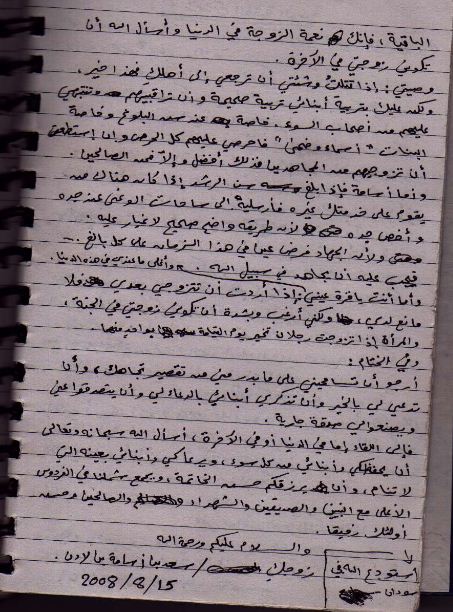 الباقية، فإنك نعمة الزوجة في الدنيا وأسأل الله أن
تكوني زوجتي في الآخرة.
وصيتي: إذا قتلت وشئتي أن ترجعي إلى أهلك فهذا خير،
ولكن عليك بتربية أبنائي تربية صحيحة وأن تراقبيهم وتنتبهي
عليهم من أصحاب السوء، خاصة عند سن البلوغ وخاصة
البنات "أسماء وضحى" فاحرصي عليهم كل الحرص وإن إستطعتي
أن تزوجيهم من المجاهدين فذلك أفضل وإلا فمن الصالحين.
وأما أسامة فإذا بلغ سن الرشد إذا كان هناك من
يقوم على غيره فأرسلية إلى ساحات الوغى عند جده
وأخص جده لأن طريقه واضح صحيح لا غبار عليه.
ولأن الجهاد فرض عين في هذا الزمان على كل بالغ
فيجب عليه أن يجاهد في سبيل الله. وأغلى ما عندي في هذه الدنيا.
وأما أنت يا قرة عيني إذا أردت أن تتزوجي بعدي فلا
مانع لدي، ولكني أرغب وبشدة أن تكوني زوجتي في الجنة،
والمرأة إذا تزوجت رجلان تخير يوم القيامة بواحد منهما.
وفي الختام:
أرجو أن تسامحيني على ما بدر مني من تقصير تجاهك، وأن
تدعي لي بالخير وأن تذكري أبنائي بالدعاء لي وأن يتصدقوا عني
ويصنعوا لي صدقة جارية
فإلى اللقاء إما في الدنيا أو في الآخرة، أسأل الله سبحانه وتعالى
أن يحفظكي وأبنائي من كل سوء، ويرعاكي وأبنائي بعينه التي
لا تنام، وأن يرزقكم حسن الخاتمة، ويجمع شملنا في الفردوس
الأعلى مع النبيين والصديقين والشهداء والصالحين وحسن
أولئك رفيقا.
والسلام عليكم ورحمة الله
أستودع الله في سودان
زوجك / سعد بن أسامة بن لادن.
2008/8/15